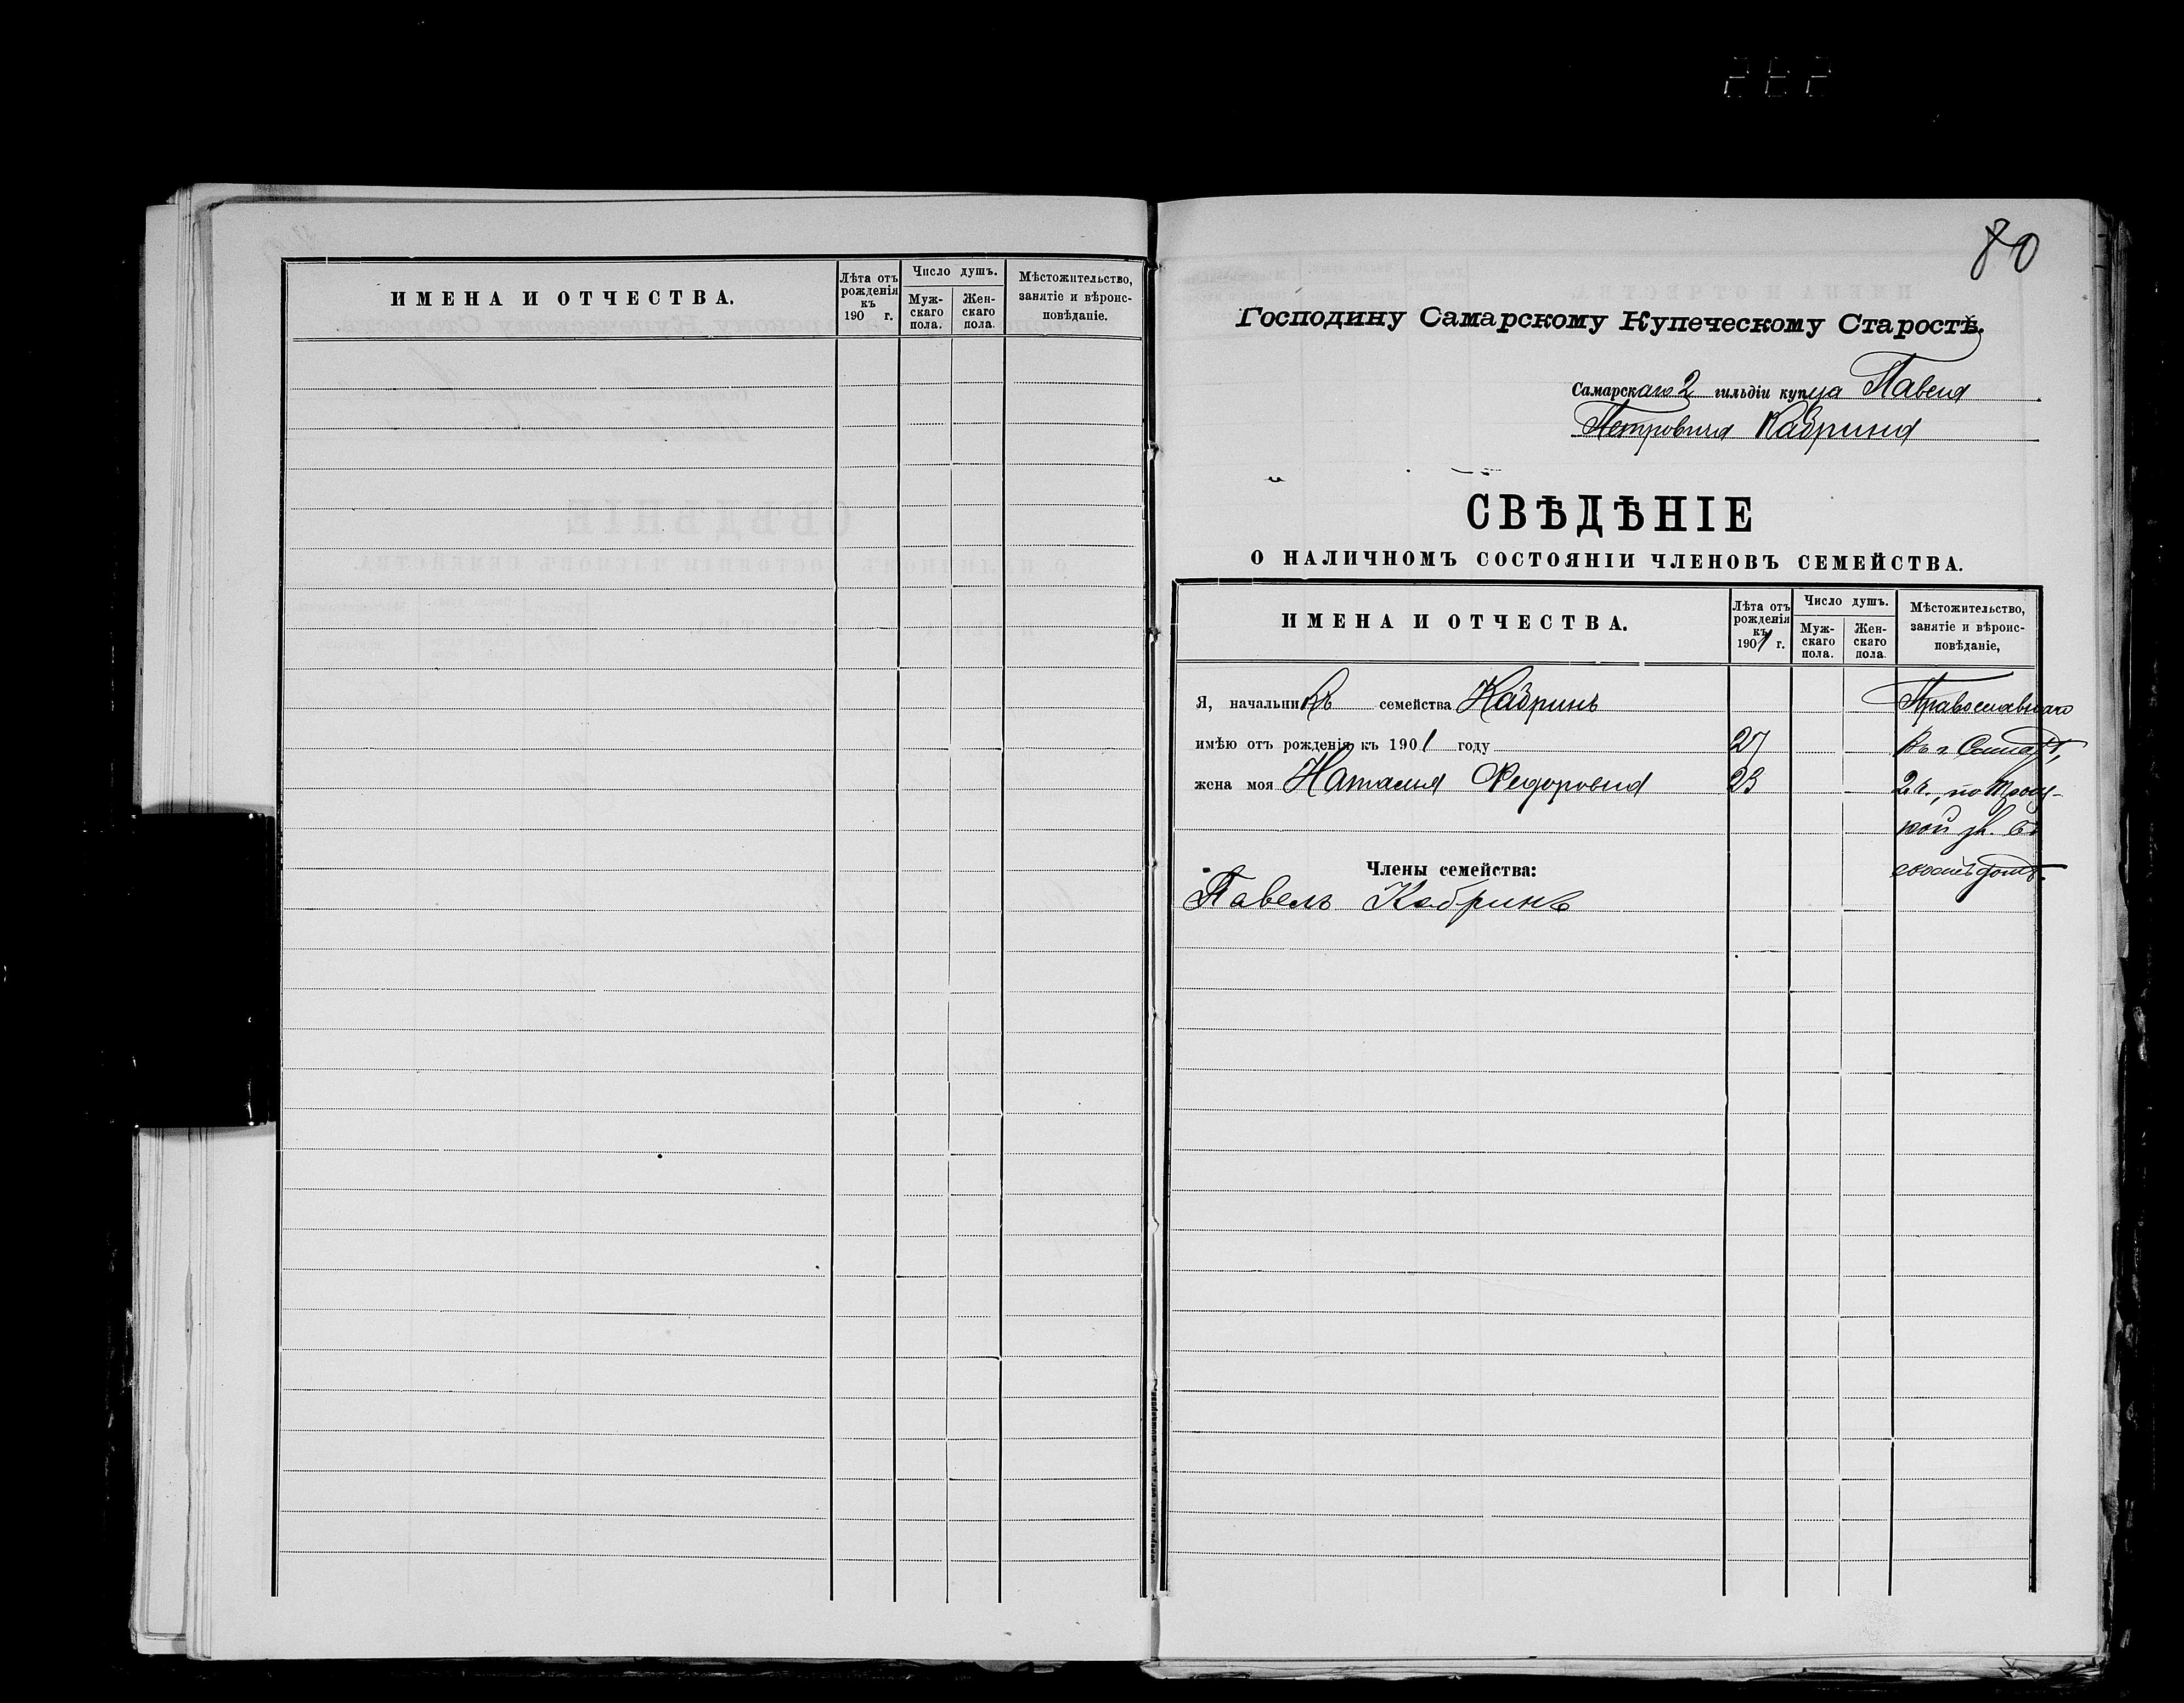 ИМЕНА И ОТЧЕСТВА.
Лѣта отъ рожденія къ 190 г.
Число душъ.
Мужскаго пола.
Женскаго пола.
Мѣстожительство, занятіе и вѣроисповѣданіе.
80
Господину Самарскому Купеческому Старостѣ.
Самарскаго 2 гильдіи купца Павела
Петровича Кабрина
СВѢДѢНІЕ
О НАЛИЧНОМЪ СОСТОЯНІИ ЧЛЕНОВЪ СЕМЕЙСТВА.
ИМЕНА И ОТЧЕСТВА.
Лѣта отъ рожденія къ 1901 г.
Число душъ.
Мужскаго пола.
Женскаго пола.
Мѣстожительство, занятіе и вѣроисповѣданіе,
Я, начальникъ семейства Кабринъ Православнаго
имѣю отъ рожденія къ 1901 году 27 Въ г. Самарѣ,
жена моя Наталья Федоровна 23 2 ч., по Троиц-
кой ул. въ
Члены семейства: своемъ домѣ.
Павелъ Кабринъ